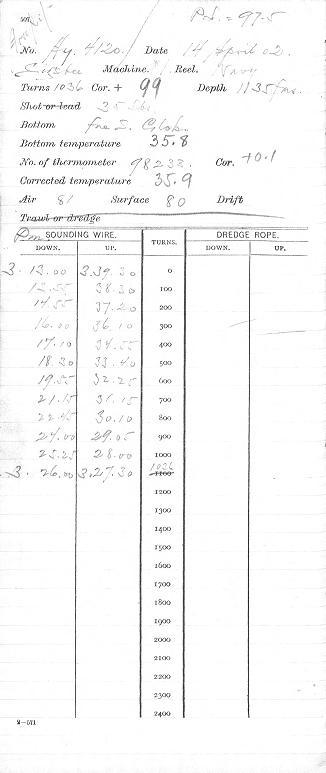 P.d. = 97.5
No. Hy. 4120 Date 14 April 02.
Machine. Reel. Navy
Turns 1036 Cor. + 99 Depth 1135 fms.
Shot or lead 35 lbs.
Bottom fne. S. Glob.
Bottom temperature 35.8
No. of thermometer 98233. Cor. +0.1
Corrected temperature 35.9
Air 81 Surface 80 Drift
Trawl or dredge
Pm SOUNDING WIRE. TURNS. DREDGE ROPE.
DOWN. UP. DOWN. UP.
3. 12.00 3.39.30 0
12.55 38.30 100
14.55 37.20 200
16.00 36.10 300
17.10 34.55 400
18.30 33.40 500
19.55 32.25 600
21.15 31.15 700
22.45 30.10 800
24.00 29.05 900
25.25 28.00 1000
3. 26.00 3.27.30 1036 1100
1200
1300
1400
1500
1600
1700
1800
1900
2000
2100
2200
2300
2400
2—571